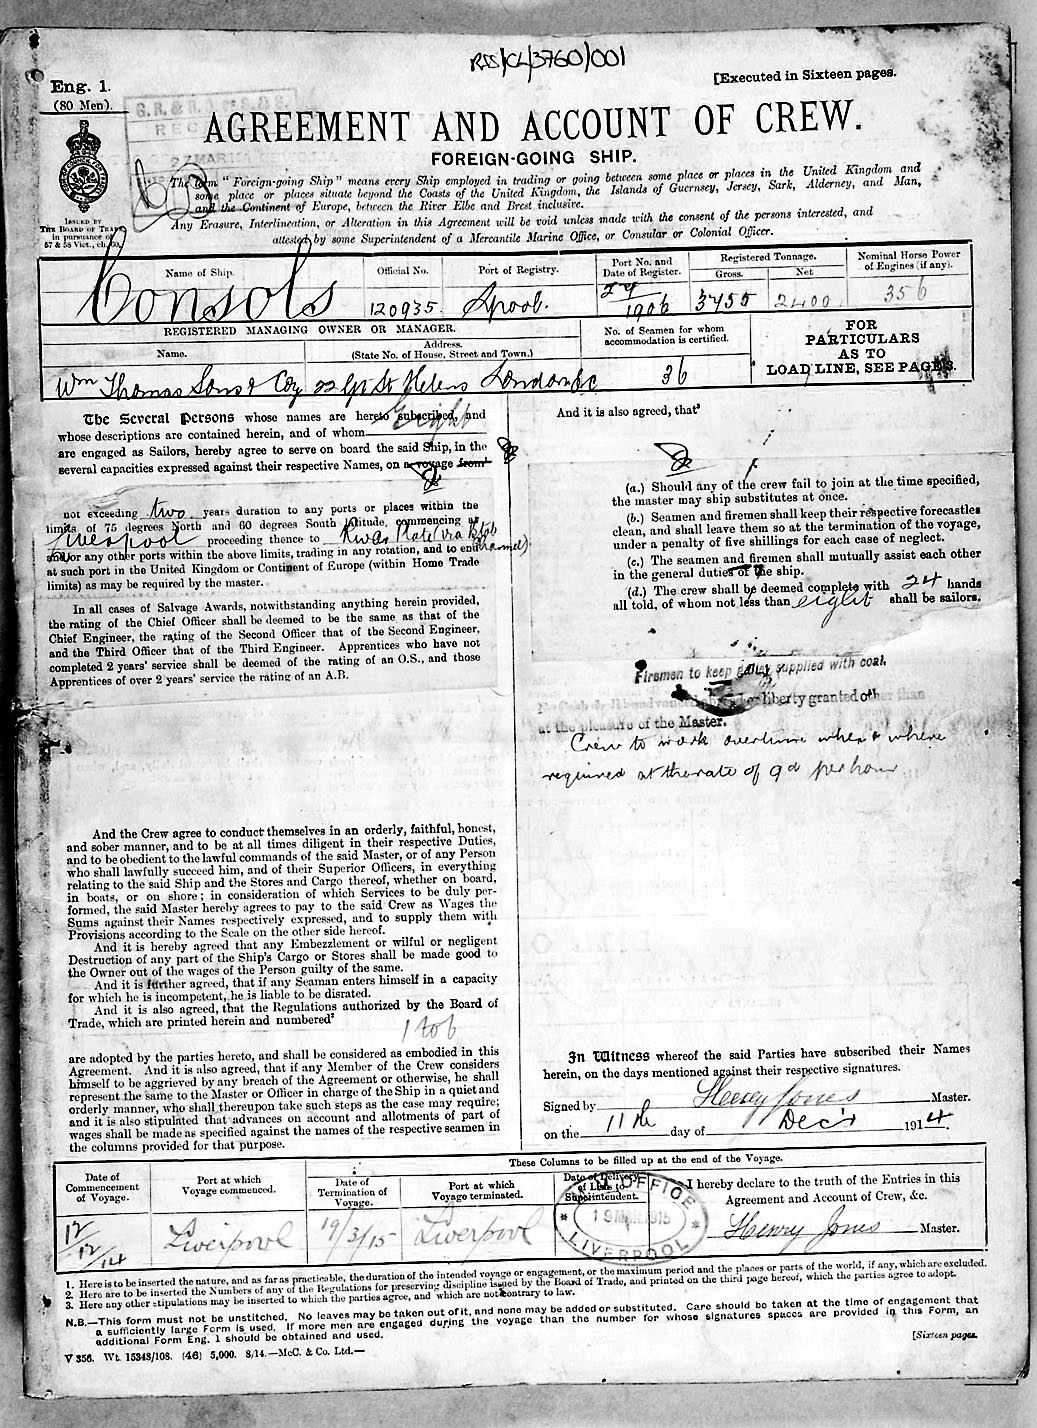 RSS/CL/3760/001
Eng. 1.
[Executed in Sixteen pages.
(80 Men).
AGREEMENT AND ACCOUNT OF CREW.
FOREIGN-GOING SHIP.
The term "Foreign-going Ship" means every Ship employed in trading or going between some place or places in the United Kingdom and
some place or places situate beyond the Coasts of the United Kingdom, the Islands of Guernsey, Jersey, Sark, Alderney, and Man,
and the Continent of Europe, between the River Elbe and Brest inclusive.
Any Erasure, Interlineation, or Alteration in this Agreement will be void unless made with the consent of the persons interested, and
attested by some Superintendent of a Mercantile Marine Office, or Consular or Colonial Officer.
ISSUED BY
THE BOARD OF TRADE
in pursuance of
57 & 58 Vict., ch. 60.
Name of Ship.
Official No.
Port of Registry.
Port No. and
Date of Register.
Registered Tonnage.
Gross.
Net
Nominal Horse Power
of Engines (if any).
Consols
120935
Lpool.
1906
3455
2400
356
REGISTERED MANAGING OWNER OR MANAGER.
Name.
Address.
(State No. of House, Street and Town.)
No. of Seamen for whom
accommodation is certified.
FOR
PARTICULARS
AS TO
LOAD LINE, SEE PAGE 3.
Wm Thomas Sons & Coy 22 Gt St Helens London EC
36
The Several Persons whose names are hereto subscribed, and
whose descriptions are contained herein, and of whom Eight
are engaged as Sailors, hereby agree to serve on board the said Ship, in the
several capacities expressed against their respective Names, on a voyage from
not exceeding two years duration to any ports or places within the
limits of 75 degrees North and 60 degrees South latitude, commencing at
Liverpool proceeding thence to River Plate (via B'tol Channel)
and/or any other ports within the above limits, trading in any rotation, and to end
at such port in the United Kingdom or Continent of Europe (within Home Trade
limits) as may be required by the master.
In all cases of Salvage Awards, notwithstanding anything herein provided,
the rating of the Chief Officer shall be deemed to be the same as that of the
Chief Engineer, the rating of the Second Officer that of the Second Engineer,
and the Third Officer that of the Third Engineer. Apprentices who have not
completed 2 years' service shall be deemed of the rating of an O.S., and those
Apprentices of over 2 years' service the rating of an A.B.
And the Crew agree to conduct themselves in an orderly, faithful, honest,
and sober manner, and to be at all times diligent in their respective Duties,
and to be obedient to the lawful commands of the said Master, or of any Person
who shall lawfully succeed him, and of their Superior Officers, in everything
relating to the said Ship and the Stores and Cargo thereof, whether on board,
in boats, or on shore; in consideration of which Services to be duly per-
formed, the said Master hereby agrees to pay to the said Crew as Wages the
Sums against their Names respectively expressed, and to supply them with
Provisions according to the Scale on the other side hereof.
And it is hereby agreed that any Embezzlement or wilful or negligent
Destruction of any part of the Ship's Cargo or Stores shall be made good to
the Owner out of the wages of the Person guilty of the same.
And it is further agreed, that if any Seaman enters himself in a capacity
for which he is incompetent, he is liable to be disrated.
And it is also agreed, that the Regulations authorized by the Board of
Trade, which are printed herein and numbered²
1 to 6
are adopted by the parties hereto, and shall be considered as embodied in this
Agreement. And it is also agreed, that if any Member of the Crew considers
himself to be aggrieved by any breach of the Agreement or otherwise, he shall
represent the same to the Master or Officer in charge of the Ship in a quiet and
orderly manner, who shall thereupon take such steps as the case may require;
and it is also stipulated that advances on account and allotments of part of
wages shall be made as specified against the names of the respective seamen in
the columns provided for that purpose.
And it is also agreed, that³
(a.) Should any of the crew fail to join at the time specified,
the master may ship substitutes at once.
(b.) Seamen and firemen shall keep their respective forecastles
clean, and shall leave them so at the termination of the voyage,
under a penalty of five shillings for each case of neglect.
(c.) The seamen and firemen shall mutually assist each other
in the general duties of the ship.
(d.) The crew shall be deemed complete with 24 hands
all told, of whom not less than eight shall be sailors.
Firemen to keep galley supplied with coal.
or liberty granted other than
at the pleasure of the Master.
Crew to work overtime when & where
required at the rate of 9d per hour
In Witness whereof the said Parties have subscribed their Names
herein, on the days mentioned against their respective signatures.
Signed by Henry Jones Master.
on the 11th day of Dec'r 1914.
These Columns to be filled up at the end of the Voyage.
Date of
Commencement
of Voyage.
Port at which
Voyage commenced.
Date of
Termination of
Voyage.
Port at which
Voyage terminated.
Date of Delivery
of Lists to
Superintendent.
I hereby declare to the truth of the Entries in this
Agreement and Account of Crew, &c.
12/12/14
Liverpool
19/3/15
Liverpool
OFFICE
19 MAR 1915
LIVERPOOL
Henry Jones Master.
1. Here is to be inserted the nature, and as far as practicable, the duration of the intended voyage or engagement, or the maximum period and the places or parts of the world, if any, which are excluded.
2. Here are to be inserted the Numbers of any of the Regulations for preserving discipline issued by the Board of Trade, and printed on the third page hereof, which the parties agree to adopt.
3. Here any other stipulations may be inserted to which the parties agree, and which are not contrary to law.
N.B.—This form must not be unstitched. No leaves may be taken out of it, and none may be added or substituted. Care should be taken at the time of engagement that
a sufficiently large Form is used. If more men are engaged during the voyage than the number for whose signatures spaces are provided in this Form, an
additional Form Eng. 1 should be obtained and used.
[Sixteen pages.
V 356. Wt. 15348/108. (46) 5,000. 8/14.—McC. & Co. Ltd.—